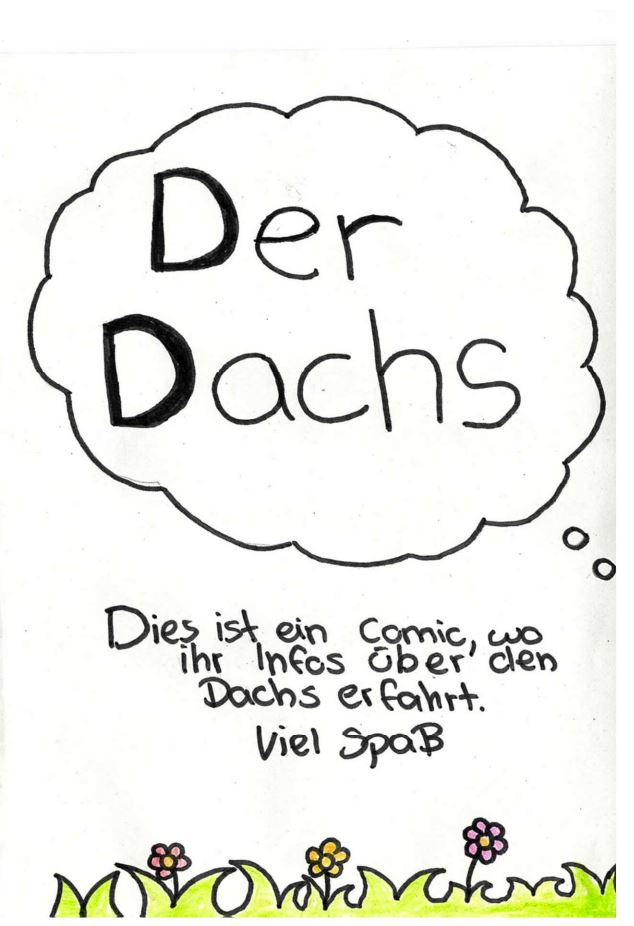 Der
Dachs
Dies ist ein Comic, wo
ihr Infos über den
Dachs erfahrt.
Viel Spaß